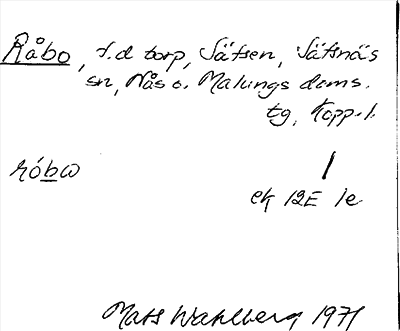 Råbo, f.d torp, Sätsen, Säfsnäs
sn, Nås o. Malungs doms.
tg, Kopp.l.
róbω
ek 12E 1e
Mats Wahlberg 1971